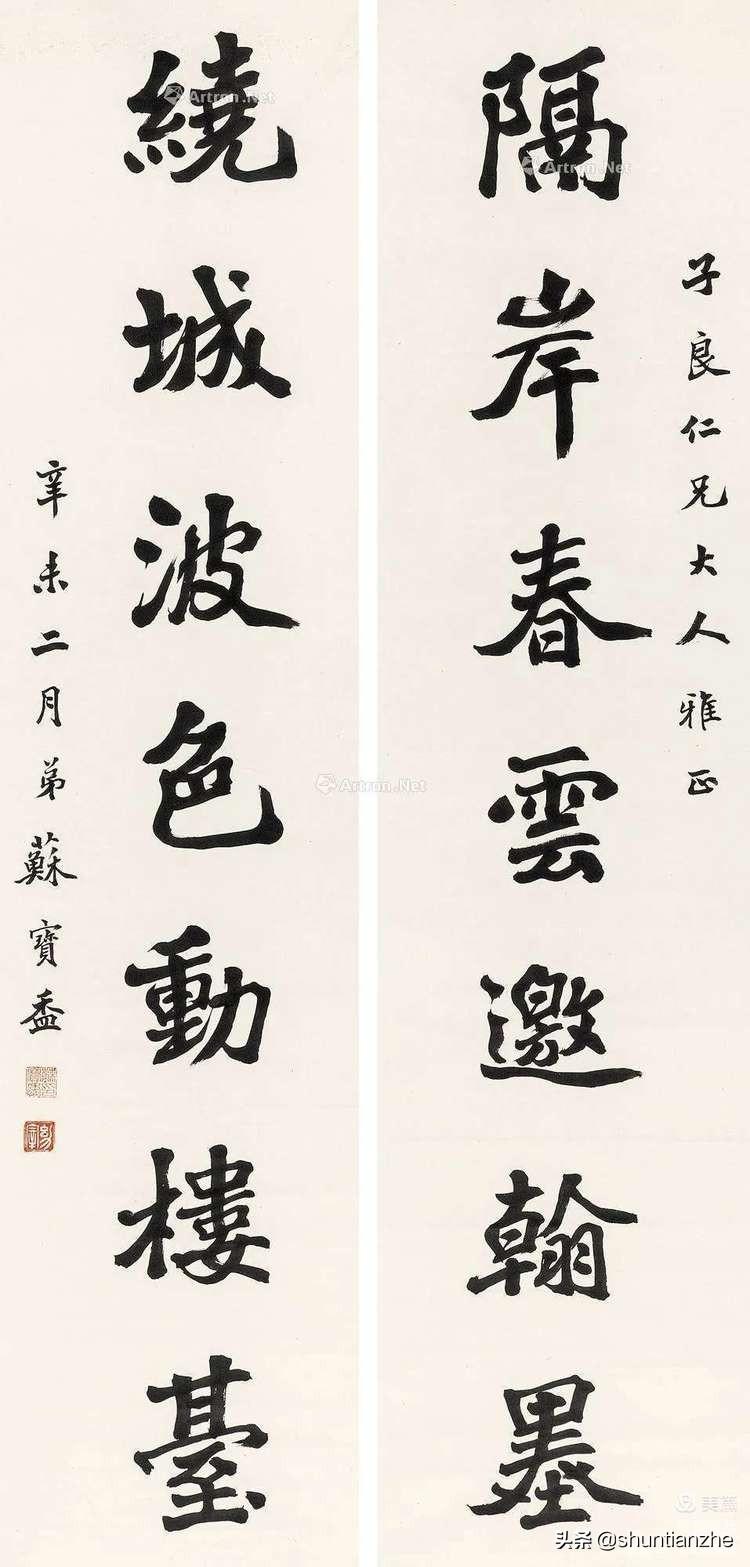 子良仁兄大人雅正
隔岸春雲邀翰墨
繞城波色動樓臺
辛未二月弟蘇寶盉
Artron.Net
Artron.Net
Artron.Net
美篇
头条 @shuntianzhe